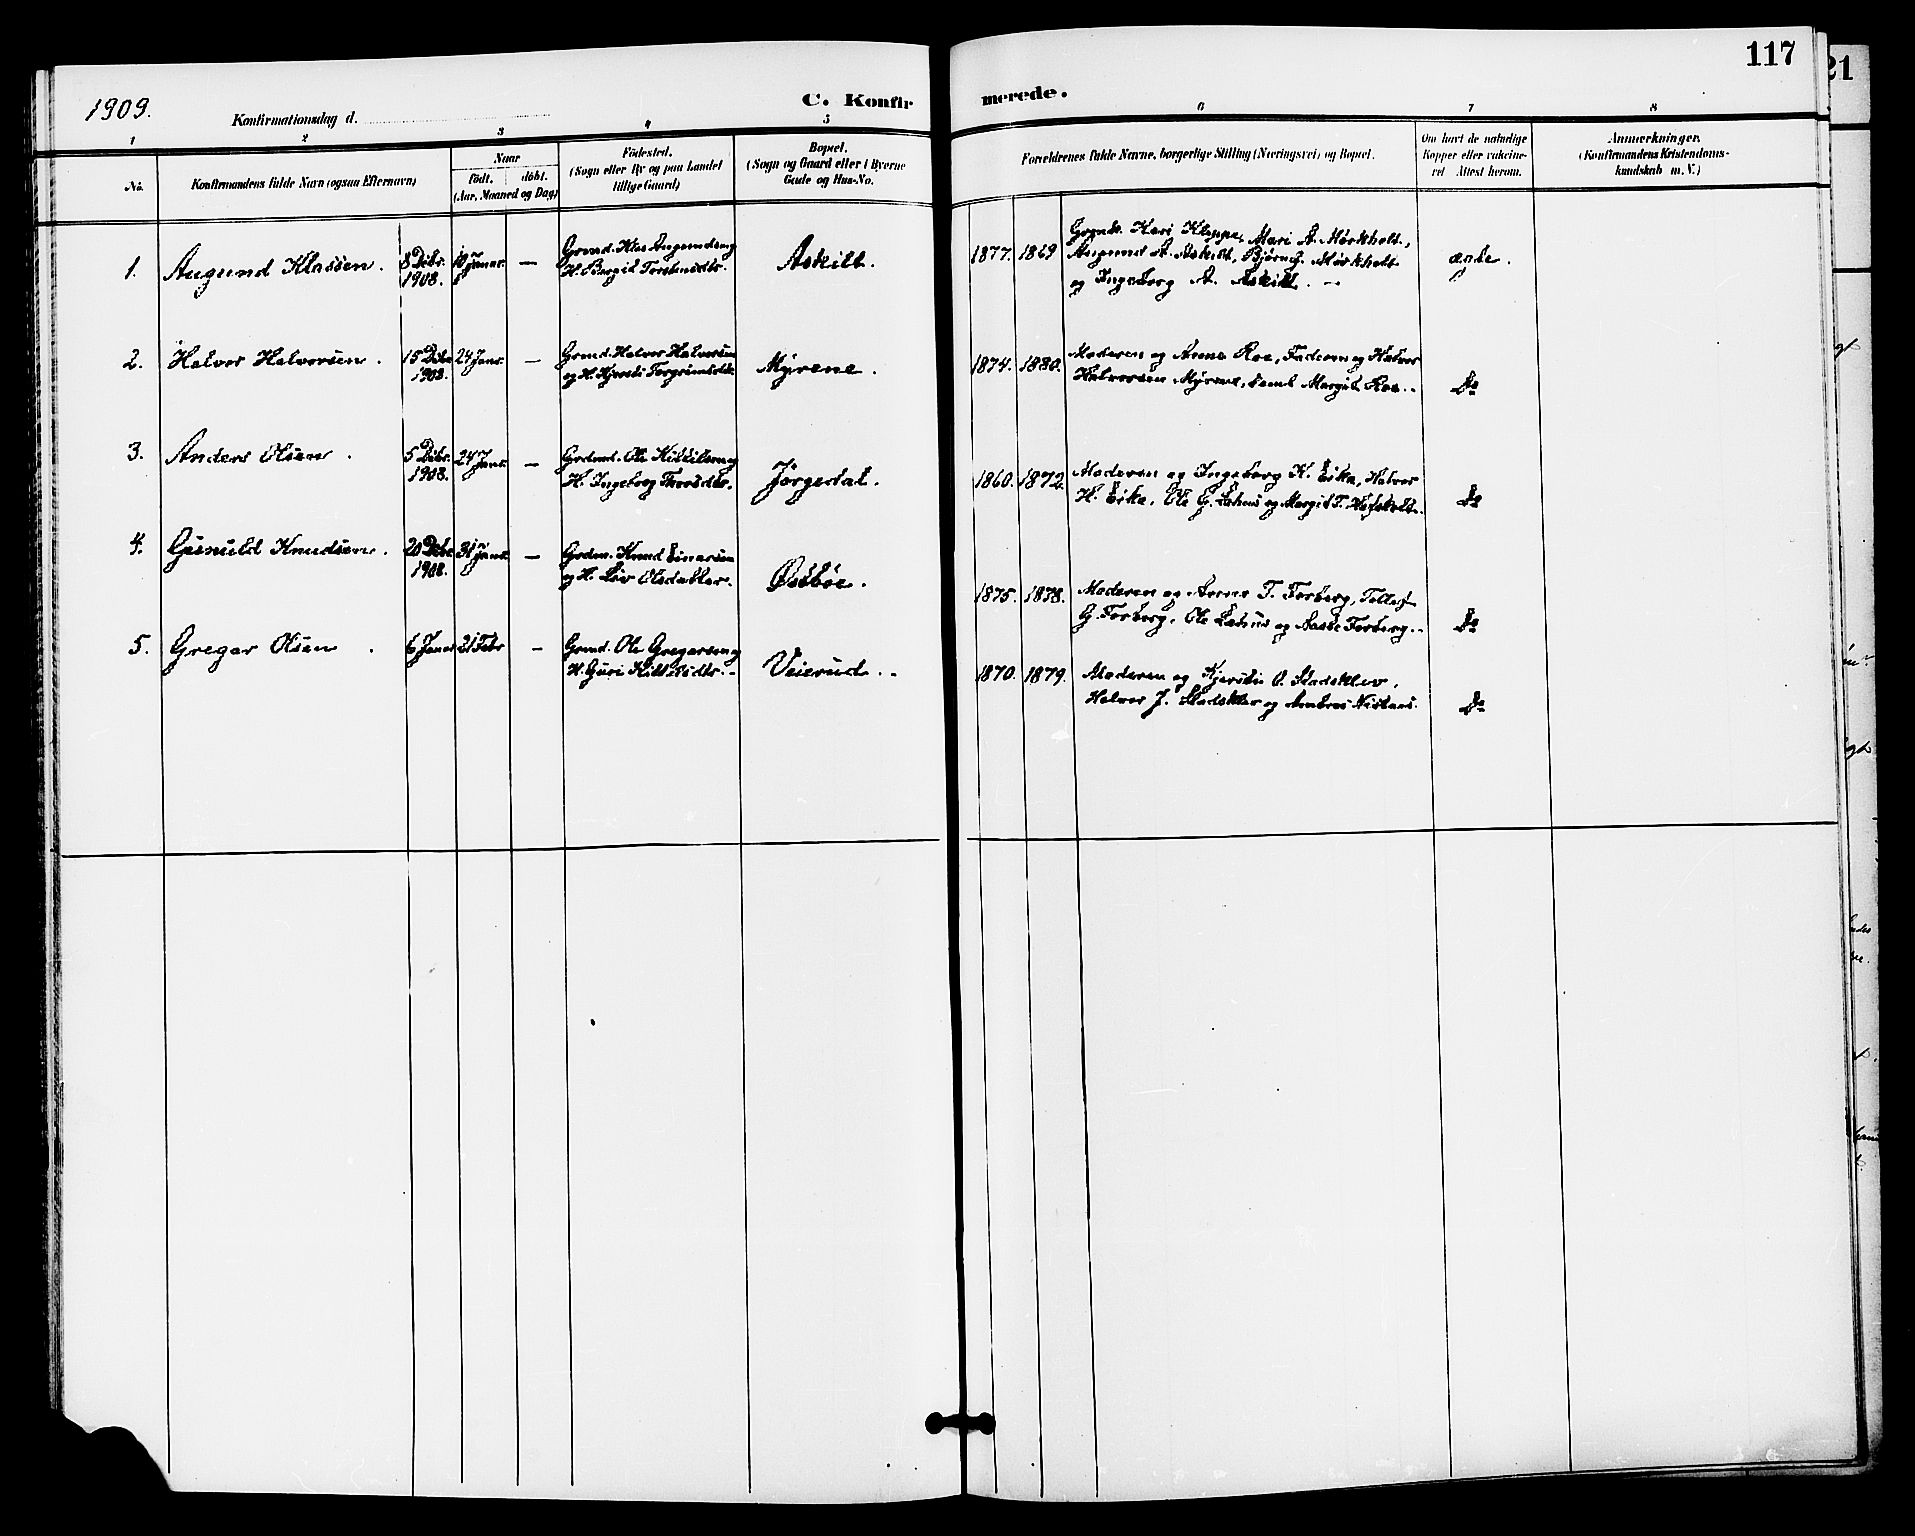 117
21
1909.
Konfirmationsdag d.
C. Konfir
merede.
1 2 3 4 5 6 7 8
No.
Konfirmandens fulde Navn (ogsaa Efternavn)
Naar
født. døbt.
(Aar, Maaned og Dag)
Fødested.
(Sogn eller By og paa Landet
tillige Gaard)
Bopæl.
(Sogn og Gaard eller i Byerne
Gade og Hus-No.
Forældrenes fulde Navne, borgerlige Stilling (Næringsvei) og Bopæl.
Om havt de naturlige
Kopper eller vakcine-
ret Attest herom.
Anmærkninger.
(Konfirmandens Kristendoms-
kundskab m. V.)
1. Augund Klassen. 8 Dcbr. 10 Januar. —
1908.
Grmd. Klas Augundsen og
H. Bergit Torstensdtr.
Askilt.
1877. 1869
Grmd. Kari Kleppe, Mari A. Mørkholt,
Augund A. Askilt, Bjørn G. Mørkholt
og Ingeborg A. Askilt.
ægte.
2. Halvor Halvorsen. 15 Dcbr 24 Janr. —
1908.
Grmd. Halvor Halvorsen
og H. Kjersti Torgrimsdtr.
Myrene.
1874. 1880.
Moderen og Anne Roe, Faderen og Halvor
Halvorsen Myrene, samt Margit Roe.
Do
3. Anders Olsen. 5 Dcbr. 24 Janr. —
1908.
Grdmd. Ole Kittilsen og
H. Ingeborg Torsdtr.
Jørgedal.
1860. 1872
Moderen og Ingeborg K. Eika, Halvor
H. Eika, Ole G. Lahus og Margit T.
Do
4. Gunuld Knudsen. 20 Dcbr. 31 Janr. —
1908.
Grdm. Knud Einarsen
og H. Liv Olsdatter.
Østbøe.
1875. 1878.
Moderen og Anne T. Forberg, Tellef
G. Forberg, Ole Lahus og Aasne Forberg.
Do
5. Gregar Olsen. 6 Janr 21 Febr —
Grmd. Ole Gregarsen og
H. Guri Kittilsdtr.
Veierud.
1870. 1879.
Moderen og Kjersti O. Stadskleiv,
Halvor J. Stadskleiv og Andres Nistaus.
Do